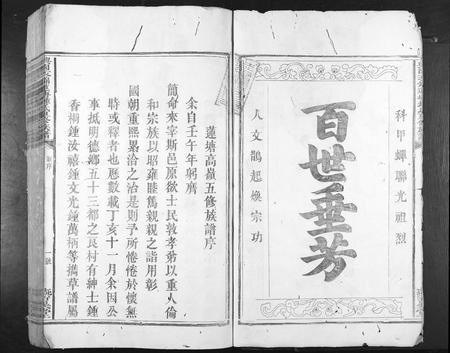 科甲蟬聯光祖烈
百世垂芳
人文鵲起煥宗功
蓮塘高嶺五修族譜序
余自壬午年躬膺
簡命來宰斯邑原欲士民敦孝弟以重人倫
和宗族以昭雍睦篤親親之誼用彰
國朝重熙累洽之治是則予所惓惓於懷無
時或釋者也歷數載丁亥十一月余因公
事抵明德鄉五十三都之良村有紳士鍾
香桐鍾汝禧鍾文光鍾萬柄等攜草譜屬